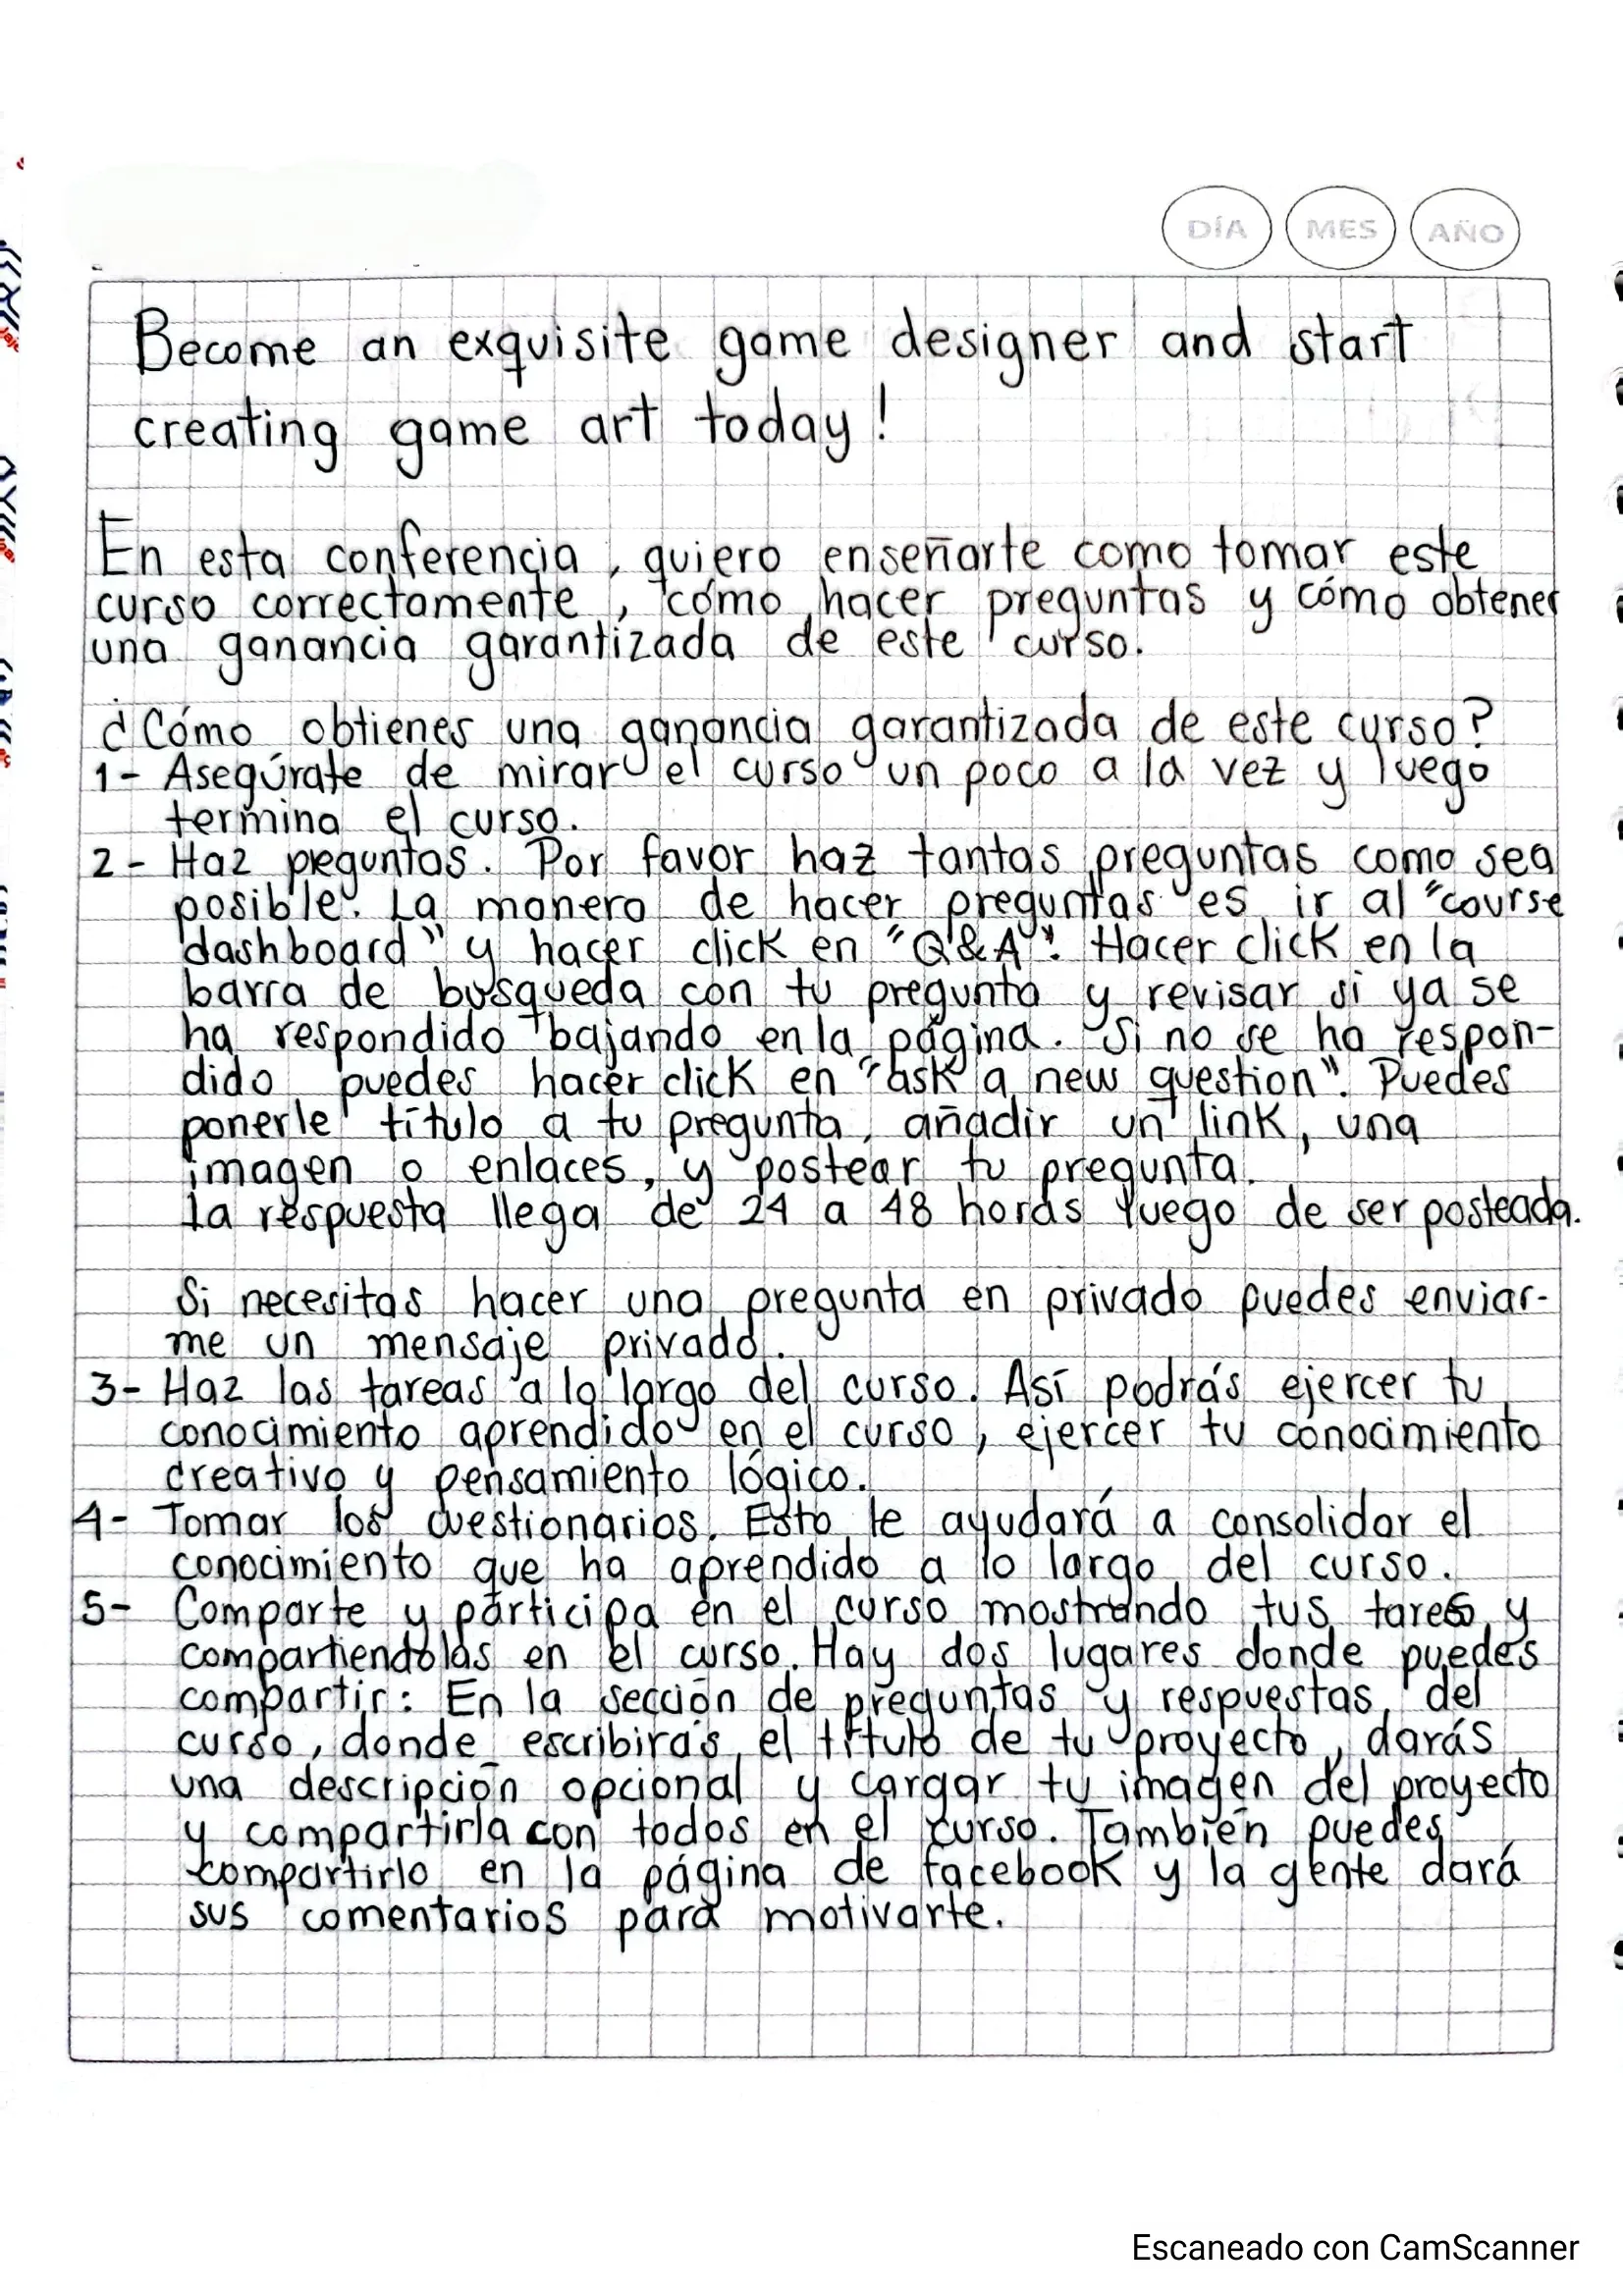 DÍA MES AÑO
Become an exquisite game designer and start
creating game art today!
En esta conferencia, quiero enseñarte como tomar este
curso correctamente, cómo hacer preguntas y cómo obtener
una ganancia garantizada de este curso.
¿Cómo obtienes una ganancia garantizada de este curso?
1- Asegúrate de mirar el curso un poco a la vez y luego
termina el curso.
2- Haz peguntas. Por favor haz tantas preguntas como sea
posible. La manera de hacer preguntas es ir al "course
dashboard" y hacer click en "Q&A". Hacer click en la
barra de busqueda con tu pregunta y revisar si ya se
ha respondido bajando en la página. Si no se ha respon-
dido puedes hacer click en "ask a new question". Puedes
ponerle título a tu pregunta, añadir un link, una
imagen o enlaces, y postear tu pregunta.
La respuesta llega de 24 a 48 horas luego de ser posteada.
Si necesitas hacer una pregunta en privado puedes enviar-
me un mensaje privado.
3- Haz las tareas a lo largo del curso. Así podrás ejercer tu
conocimiento aprendido en el curso, ejercer tu conocimiento
creativo y pensamiento lógico.
4- Tomar los cuestionarios. Esto le ayudará a consolidar el
conocimiento que ha aprendido a lo largo del curso.
5- Comparte y participa en el curso mostrando tus tares y
compartiendolas en el curso. Hay dos lugares donde puedes
compartir: En la sección de preguntas y respuestas del
curso, donde escribirás el título de tu proyecto, darás
una descripción opcional y cargar tu imagen del proyecto
y compartirla con todos en el curso. También puedes
compartirlo en la página de facebook y la gente dará
sus comentarios para motivarte.
Escaneado con CamScanner